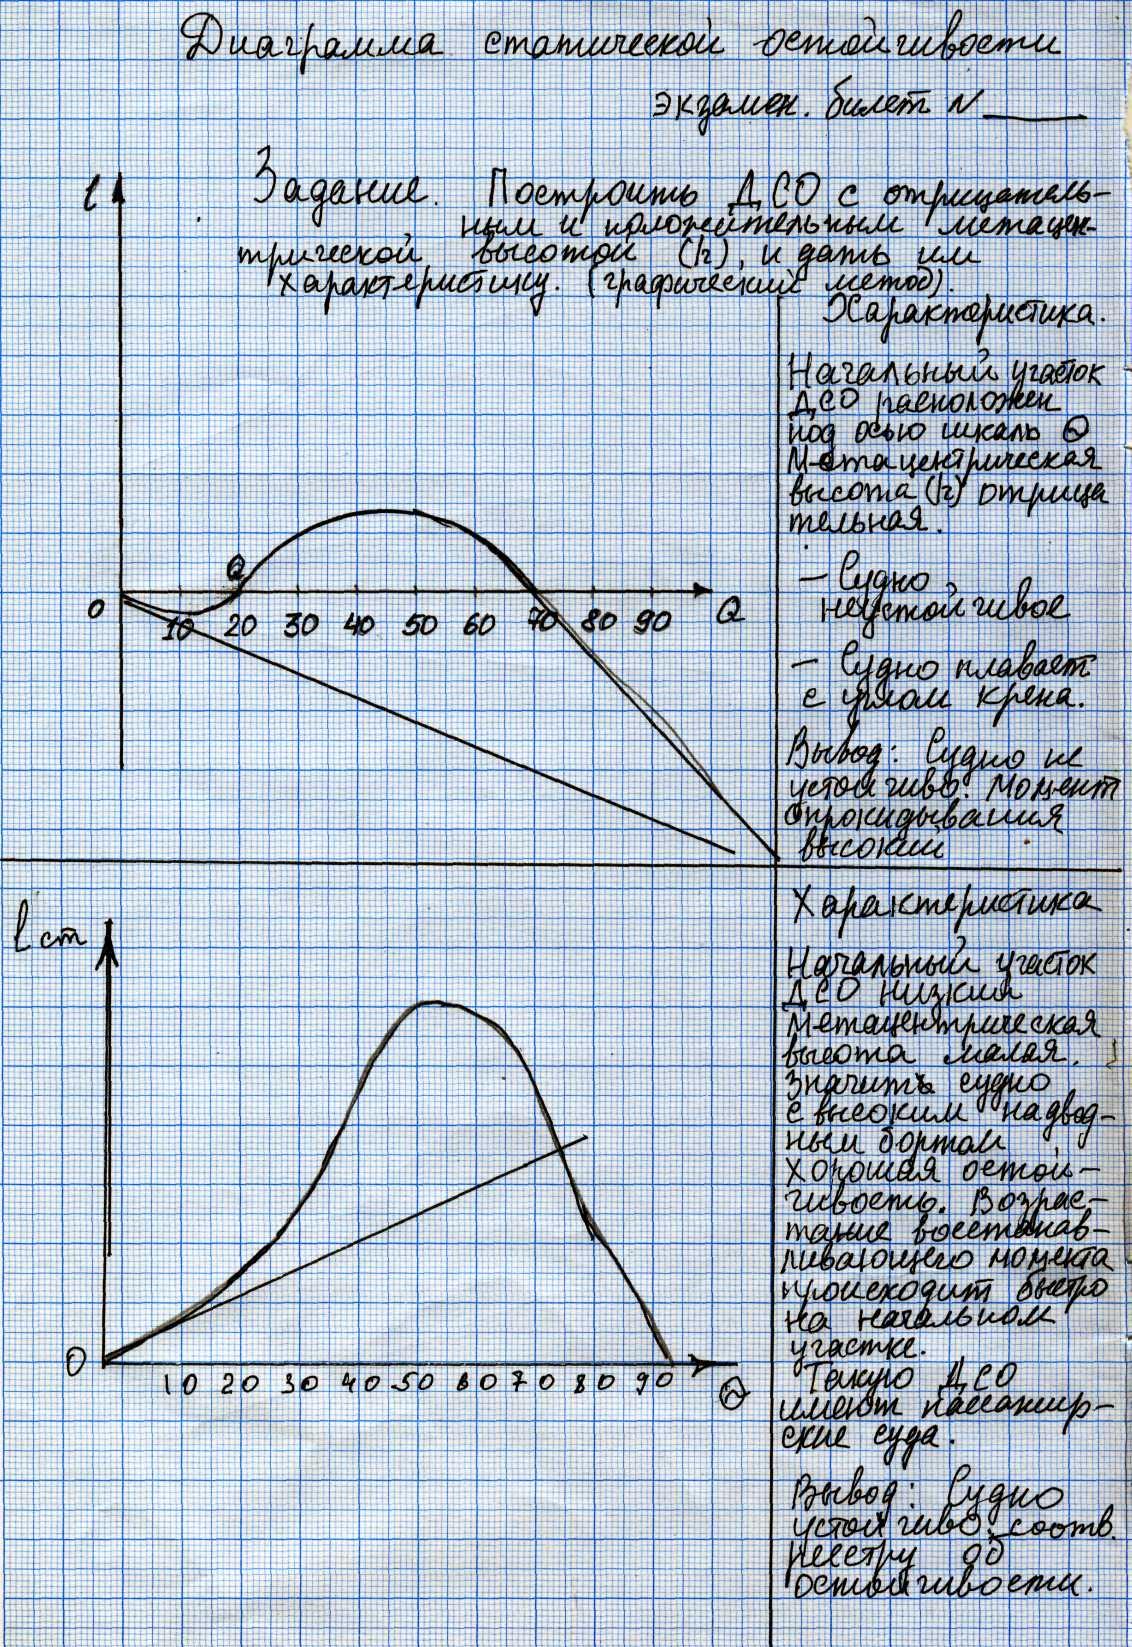 Диаграмма статической остойчивости
экзамен. билет N
Задание. Построить ДСО с отрицатель-
ным и положительным метацен-
трической высотой (h), и дать им
характеристику. (графический метод).
l
0
Θ
10 20 30 40 50 60 70 80 90 Θ
Характеристика.
Начальный участок
ДСО расположен
под осью шкалы Θ
Метацентрическая
высота (h) отрица
тельная.
— Судно
неустойчивое
— Судно плавает
с углом крена.
Вывод: Судно не
устойчиво. Момент
опрокидывания
высокий
l ст
0
10 20 30 40 50 60 70 80 90 Θ
Характеристика
Начальный участок
ДСО низкий
метацентрическая
высота малая.
Значить судно
с высоким надвод-
ным бортом
хорошая остой-
чивость. Возрас-
тание восстанав-
ливающего момента
происходит быстро
на начальном
участке.
Такую ДСО
имеют пассажир-
ские суда.
Вывод: Судно
устойчиво. соотв.
реестру об
остойчивости.